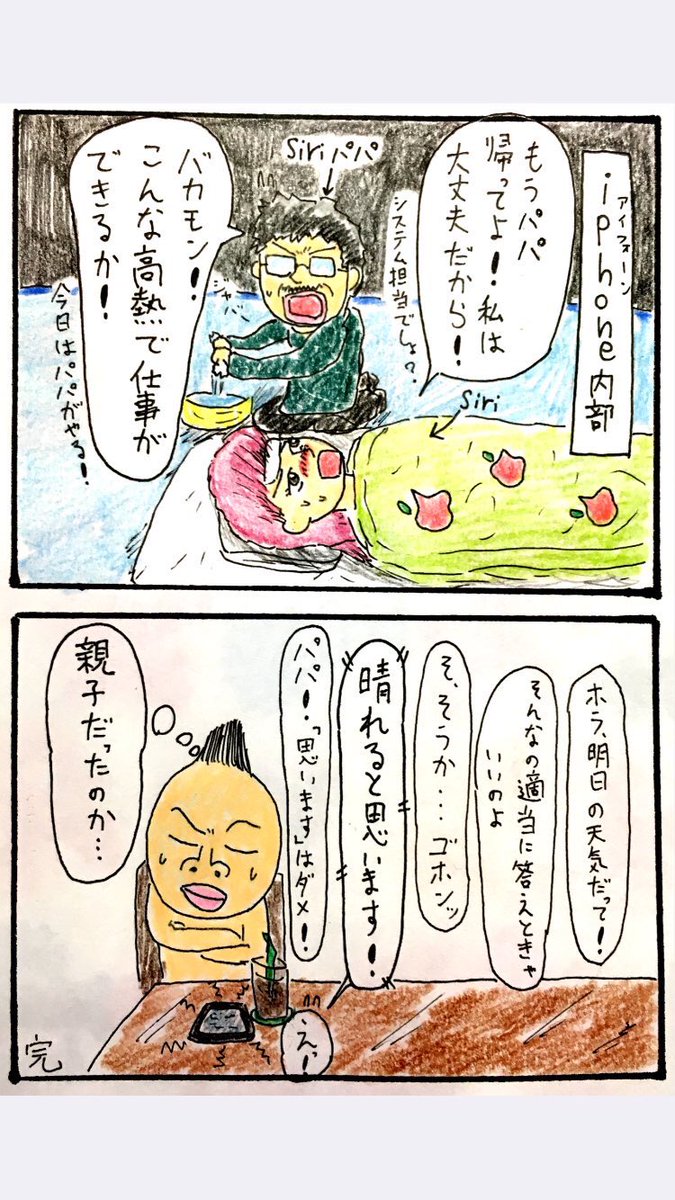 アイフォーン
iphone内部
もうパパ
帰ってよ！私は
大丈夫だから！
システム担当でしょ？
Siriパパ
バカモン！
こんな高熱で仕事が
できるか！
今日はパパがやる！
ジャバ
Siri
ホラ、明日の天気だって！
そんなの適当に答えときゃ
いいのよ
そ、そうか…ゴホンッ
晴れると思います！
パパー！「思います」はダメ！
えっ！
親子だったのか…
完